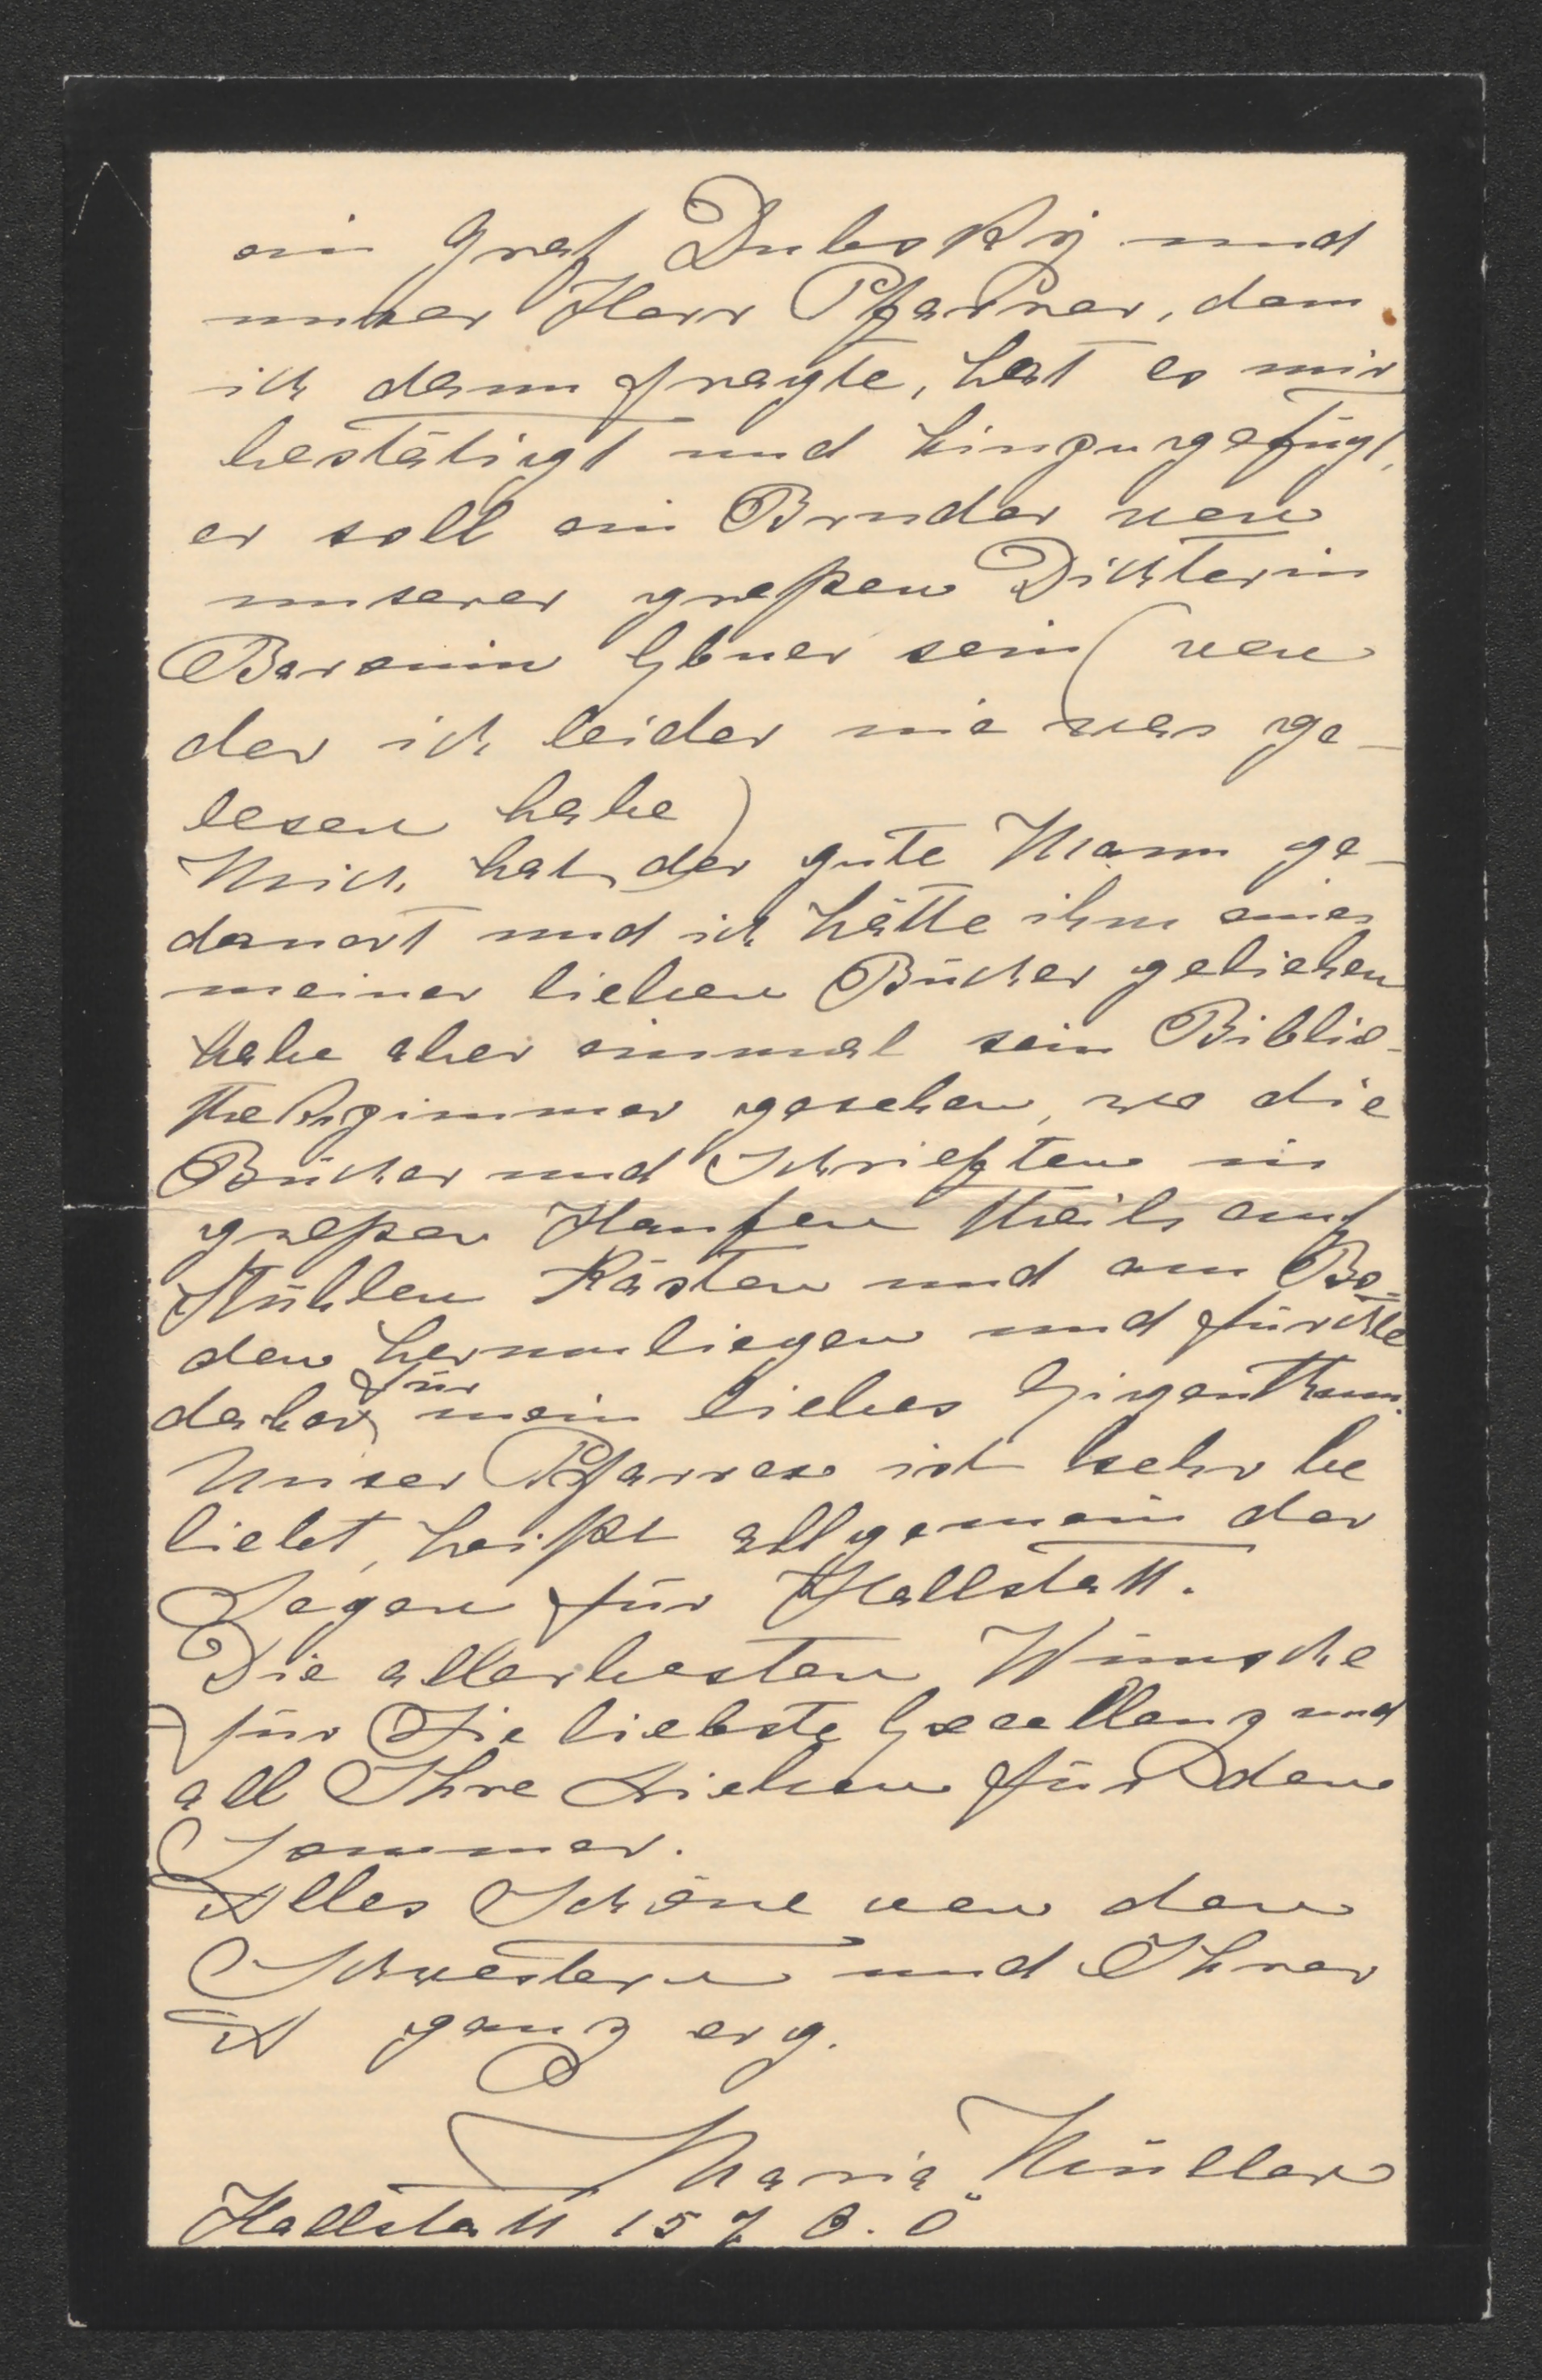 ein Graf Dubsky und
unser Herr Pfarrer, dem
ich dann fragte, hat es mir
bestätigt und hinzugefügt,
er soll ein Bruder von
unserer großen Dichterin
Baronin Ebner sein (von
der ich leider nie was ge-
lesen habe)
Mich hat der gute Mann ge-
dauert und ich hätte ihm eines
meiner lieben Bücher geliehen
habe aber einmal sein Biblio-
thekzimmer gesehen, wo die
Bücher und Schriefften in
großen Haufen theils auf
Stühlen Kästen und am Bo-
den herumliegen und fürchte
daher für mein liebes Eigenthum.
Unser Pfarrer ist sehr be
liebt, heißt allgemein der
Segen für Hallstatt.
Die allerbesten Wünsche
für Sie liebste Excellenz und
all Ihre Lieben für den
Sommer.
Alles Schöne von den
Schwestern und Ihrer
ganz erg.
Maria Müller
Hallstatt 15 7 O. Ö